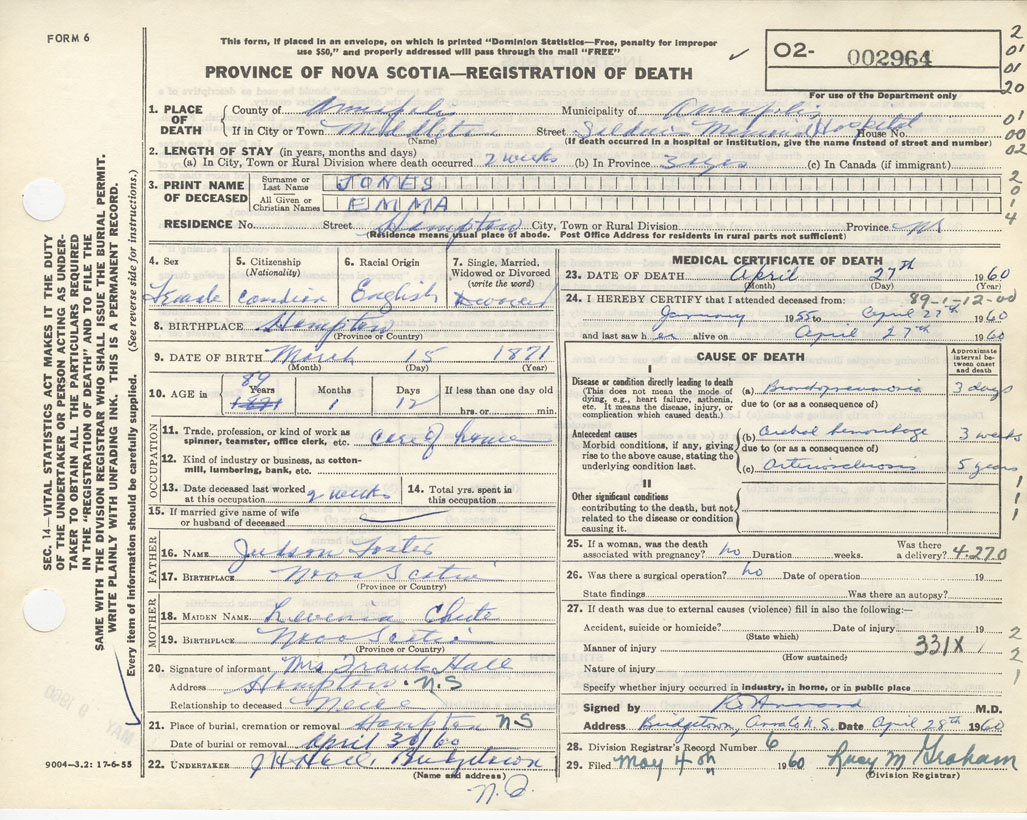 FORM 6
This form, if placed in an envelope, on which is printed "Dominion Statistics—Free, penalty for improper
use $50," and properly addressed will pass through the mail "FREE"
PROVINCE OF NOVA SCOTIA—REGISTRATION OF DEATH
O2- 002964
For use of the Department only
2
01
01
20
01
00
02
2
0
1
4
1. PLACE OF DEATH County of Annapolis Municipality of Annapolis
If in City or Town Middleton Street Soldiers Memorial Hospital House No.
(Name) (If death occurred in a hospital or institution, give the name instead of street and number)
2. LENGTH OF STAY (in years, months and days)
(a) In City, Town or Rural Division where death occurred 2 weeks (b) In Province 3 yrs (c) In Canada (if immigrant)
3. PRINT NAME OF DECEASED Surname or Last Name JONES
All Given or Christian Names EMMA
RESIDENCE No. Street Hampton City, Town or Rural Division Province NS
(Residence means usual place of abode. Post Office Address for residents in rural parts not sufficient)
SEC. 14—VITAL STATISTICS ACT MAKES IT THE DUTY
OF THE UNDERTAKER OR PERSON ACTING AS UNDER-
TAKER TO OBTAIN ALL THE PARTICULARS REQUIRED
IN THE "REGISTRATION OF DEATH" AND TO FILE THE
SAME WITH THE DIVISION REGISTRAR WHO SHALL ISSUE THE BURIAL PERMIT.
WRITE PLAINLY WITH UNFADING INK. THIS IS A PERMANENT RECORD.
Every item of information should be carefully supplied. (See reverse side for instructions.)
4. Sex
Female
5. Citizenship
(Nationality)
Canadian
6. Racial Origin
English
7. Single, Married,
Widowed or Divorced
(write the word)
8. BIRTHPLACE Hampton
(Province or Country)
9. DATE OF BIRTH March 15 1871
(Month) (Day) (Year)
10. AGE in Years 89 1871 Months 1 Days 12 If less than one day old
hrs. or min.
OCCUPATION
11. Trade, profession, or kind of work as
spinner, teamster, office clerk, etc. care of home
12. Kind of industry or business, as cotton-
mill, lumbering, bank, etc.
13. Date deceased last worked
at this occupation 2 weeks
14. Total yrs. spent in
this occupation
15. If married give name of wife
or husband of deceased
FATHER
16. NAME Judson Foster
17. BIRTHPLACE Nova Scotia
(Province or Country)
MOTHER
18. MAIDEN NAME Levinia Chute
19. BIRTHPLACE Nova Scotia
(Province or Country)
20. Signature of informant Mrs Frank Hall
Address Hampton N.S
Relationship to deceased Neice
21. Place of burial, cremation or removal Hampton NS
Date of burial or removal April 30/60
22. UNDERTAKER Bridgetown
(Name and address)
N.S.
9004—3.2: 17-6-55
MAY 9 1960
MEDICAL CERTIFICATE OF DEATH
23. DATE OF DEATH April 27th 1960
(Month) (Day) (Year)
24. I HEREBY CERTIFY that I attended deceased from: 89-1-12-00
January 1955 to April 27th 1960
and last saw h er alive on April 27th 1960
CAUSE OF DEATH
Approximate interval between onset and death
I
Disease or condition directly leading to death
(This does not mean the mode of
dying, e.g., heart failure, asthenia,
etc. It means the disease, injury, or
complication which caused death.)
(a) Bronchopneumonia 3 days
due to (or as a consequence of)
Antecedent causes
Morbid conditions, if any, giving
rise to the above cause, stating the
underlying condition last.
(b) Cerebral hemorrhage 3 weeks
due to (or as a consequence of)
(c) Arteriosclerosis 5 years
II
Other significant conditions
contributing to the death, but not
related to the disease or condition
causing it.
1
1
1
25. If a woman, was the death
associated with pregnancy? no Duration weeks. Was there
a delivery? 4.270
26. Was there a surgical operation? no Date of operation 19
State findings Was there an autopsy?
27. If death was due to external causes (violence) fill in also the following:—
Accident, suicide or homicide? Date of injury 19
(State which)
Manner of injury 331X
(How sustained)
Nature of injury
Specify whether injury occurred in industry, in home, or in public place
2
2
1
Signed by M.D.
Address Bridgetown, Anna Co N.S. Date April 28th 1960
28. Division Registrar's Record Number 6
29. Filed May 4th 1960 Lucy M Graham
(Division Registrar)